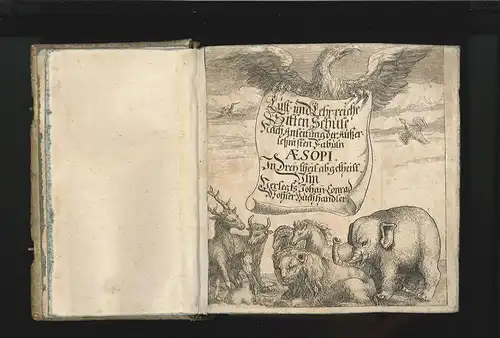 Lust- und Lehr-reiche
Sitten Schule
Nach Anleitung der Außer
lesensten Fabuln
ÆSOPI.
In Drey theil abgetheilt
Ulm
Verlegts Johan Conrad
Wohler Buchhändler